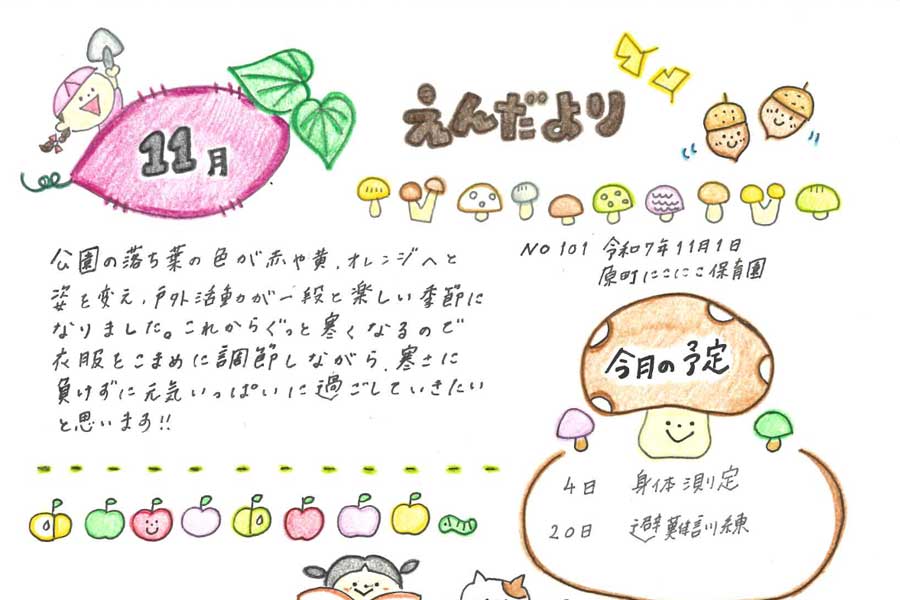 11月
えんだより
NO101 令和7年11月1日
原町にこにこ保育園
公園の落ち葉の色が赤や黄、オレンジへと
姿を変え、戸外活動が一段と楽しい季節に
なりました。これからぐっと寒くなるので
衣服をこまめに調節しながら、寒さに
負けずに元気いっぱいに過ごしていきたい
と思います!!
今月の予定
4日 身体測定
20日 避難訓練